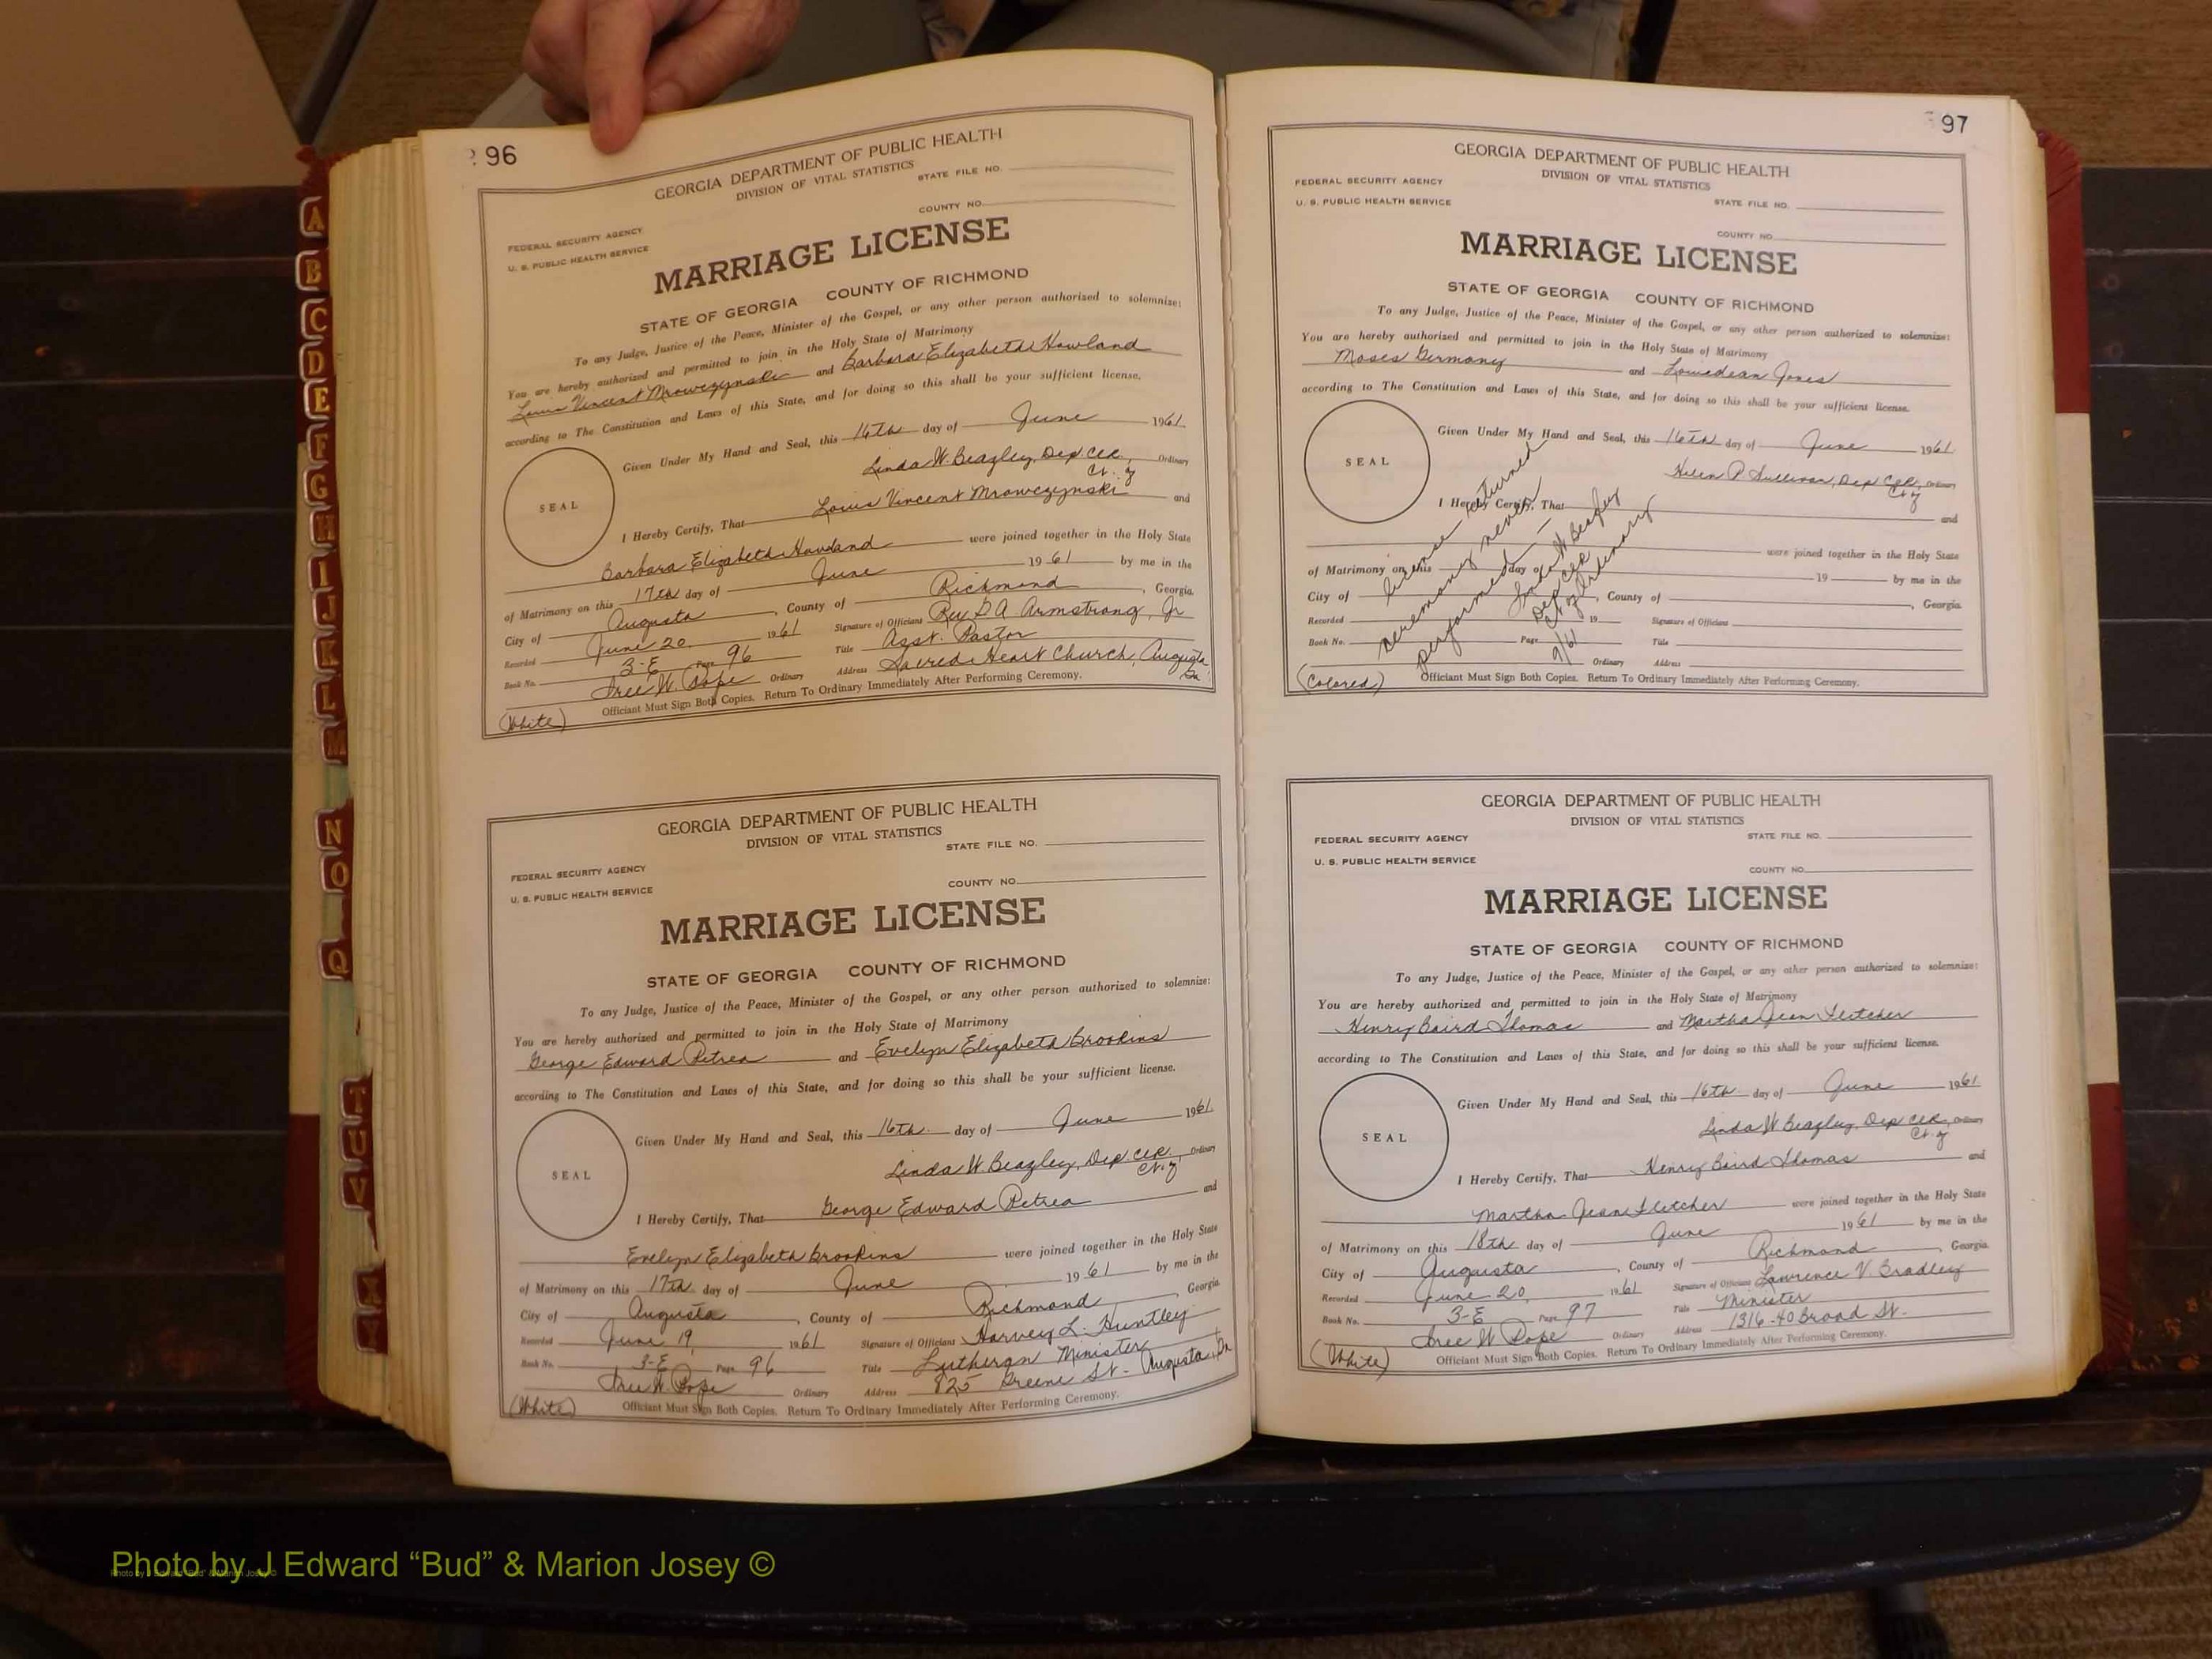 96
GEORGIA DEPARTMENT OF PUBLIC HEALTH
DIVISION OF VITAL STATISTICS
STATE FILE NO.
COUNTY NO.
FEDERAL SECURITY AGENCY
U. S. PUBLIC HEALTH SERVICE
MARRIAGE LICENSE
STATE OF GEORGIA COUNTY OF RICHMOND
To any Judge, Justice of the Peace, Minister of the Gospel, or any other person authorized to solemnize:
You are hereby authorized and permitted to join in the Holy State of Matrimony
Louis Vincent Mrowczynski and Barbara Elizabeth Howland
according to The Constitution and Laws of this State, and for doing so this shall be your sufficient license.
Given Under My Hand and Seal, this 16th day of June 1961
Linda W. Beazley, Dep. Clk. Ordinary
Ct. of
SEAL
I Hereby Certify, That Louis Vincent Mrowczynski and
Barbara Elizabeth Howland were joined together in the Holy State
of Matrimony on this 17th day of June 1961 by me in the
City of Augusta, County of Richmond, Georgia.
Recorded June 20, 1961 Signature of Officiant Rev D A Armstrong, Jr
Book No. 3-E Page 96 Title Asst. Pastor
Ordinary Address Sacred Heart Church, Augusta Ga.
Officiant Must Sign Both Copies. Return To Ordinary Immediately After Performing Ceremony.
(White)
GEORGIA DEPARTMENT OF PUBLIC HEALTH
DIVISION OF VITAL STATISTICS
STATE FILE NO.
FEDERAL SECURITY AGENCY
COUNTY NO.
U. S. PUBLIC HEALTH SERVICE
MARRIAGE LICENSE
STATE OF GEORGIA COUNTY OF RICHMOND
To any Judge, Justice of the Peace, Minister of the Gospel, or any other person authorized to solemnize:
You are hereby authorized and permitted to join in the Holy State of Matrimony
George Edward Petrea and Evelyn Elizabeth Brookins
according to The Constitution and Laws of this State, and for doing so this shall be your sufficient license.
Given Under My Hand and Seal, this 16th day of June 1961
Linda W. Beazley, Dep. Clk. Ordinary
Ct. of
SEAL
I Hereby Certify, That George Edward Petrea and
Evelyn Elizabeth Brookins were joined together in the Holy State
of Matrimony on this 17th day of June 1961 by me in the
City of Augusta, County of Richmond, Georgia.
Recorded June 19, 1961 Signature of Officiant Harvey L. Huntley
Book No. 3-E Page 96 Title Lutheran Minister
Ordinary Address 825 Greene St - Augusta, Ga
(White) Officiant Must Sign Both Copies. Return To Ordinary Immediately After Performing Ceremony.
97
GEORGIA DEPARTMENT OF PUBLIC HEALTH
DIVISION OF VITAL STATISTICS
FEDERAL SECURITY AGENCY
U. S. PUBLIC HEALTH SERVICE
STATE FILE NO.
COUNTY NO.
MARRIAGE LICENSE
STATE OF GEORGIA COUNTY OF RICHMOND
To any Judge, Justice of the Peace, Minister of the Gospel, or any other person authorized to solemnize:
You are hereby authorized and permitted to join in the Holy State of Matrimony
Moses Germany and Louiedean Jones
according to The Constitution and Laws of this State, and for doing so this shall be your sufficient license.
Given Under My Hand and Seal, this 16th day of June 1961
Helen P. Sullivan, Dep Clk, Ordinary
Ct of
SEAL
I Hereby Certify, That and
were joined together in the Holy State
of Matrimony on this day of 19 by me in the
City of , County of , Georgia.
Recorded 19 Signature of Officiant
Book No. Page Title
Ordinary Address
license returned
ceremony never
performed -
Linda W Beazley
Dep Clk
Ct of Ordinary
9/61
(Colored) Officiant Must Sign Both Copies. Return To Ordinary Immediately After Performing Ceremony.
GEORGIA DEPARTMENT OF PUBLIC HEALTH
DIVISION OF VITAL STATISTICS
FEDERAL SECURITY AGENCY
STATE FILE NO.
U. S. PUBLIC HEALTH SERVICE
COUNTY NO.
MARRIAGE LICENSE
STATE OF GEORGIA COUNTY OF RICHMOND
To any Judge, Justice of the Peace, Minister of the Gospel, or any other person authorized to solemnize:
You are hereby authorized and permitted to join in the Holy State of Matrimony
Henry Baird Thomas and Martha Jean Fletcher
according to The Constitution and Laws of this State, and for doing so this shall be your sufficient license.
Given Under My Hand and Seal, this 16th day of June 1961
Linda W Beazley, Dep Clk, Ordinary
Ct. of
SEAL
I Hereby Certify, That Henry Baird Thomas and
Martha Jean Fletcher were joined together in the Holy State
of Matrimony on this 18th day of June 1961 by me in the
City of Augusta, County of Richmond, Georgia.
Recorded June 20, 1961 Signature of Officiant Lawrence V. Bradley
Book No. 3-E Page 97 Title Minister
Ordinary Address 1316-40 Broad St.
(White) Officiant Must Sign Both Copies. Return To Ordinary Immediately After Performing Ceremony.
A
B
C
D
E
F
G
H
I
J
K
L
M
N
O
Q
T
U
V
X
Y
Photo by J Edward “Bud” & Marion Josey ©
Photo by J Edward “Bud” & Marion Josey ©